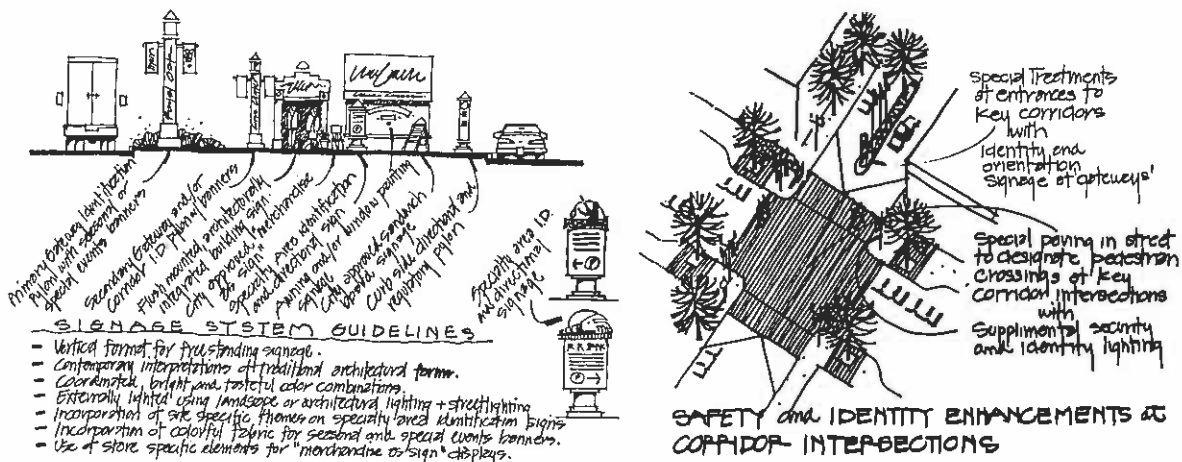 Primary Gateway Identification
Pylon with seasonal or
special events banners
Secondary Gateway and/or
Corridor I.D. Pylon/banners
Flush mounted architecturally
integrated building sign.
City approved "merchandise
as sign"
Specialty Area identification
and directional sign
Awning and/or window painting
signage
City approved sandwich
board signage
Curb side directional and
regulatory pylon
Specialty area I.D.
and directional
signage
SIGNAGE SYSTEM GUIDELINES
- Vertical format for freestanding signage.
- Contemporary interpretations of traditional architectural forms.
- Coordinated, bright and tasteful color combinations.
- Externally lighted using landscape or architectural lighting + streetlighting
- Incorporation of site specific themes on specialty area identification signs
- Incorporation of colorful fabric for seasonal and special events banners.
- Use of store specific elements for "merchandise as sign" displays.
Special Treatments
at entrances to
key corridors
with
Identity and
orientation
Signage at 'gateways'
Special paving in street
to designate pedestrian
crossings at key
corridor intersections
with
Supplimental security
and identity lighting
SAFETY and IDENTITY ENHANCEMENTS at
CORRIDOR INTERSECTIONS